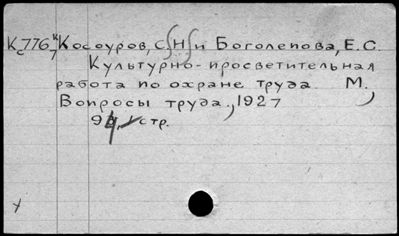 Кс776к Косоуров, С.Н. и Боголепова, Е.С.
7 Культурно-просветительная
работа по охране труда. М.,
Вопросы труда, 1927
94 стр.